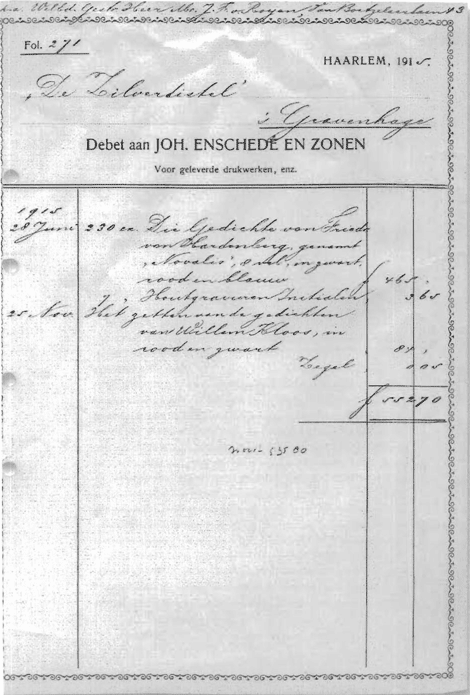 Weled. Gestr. Heer Mr. J. F. v. Royen, Van Boetzelaerlaan 43
Fol. 271
HAARLEM, 1915.
"De Zilverdistel"
's Gravenhage
Debet aan JOH. ENSCHEDÉ EN ZONEN
Voor geleverde drukwerken, enz.
1915
28 Juni 230 ex. Die Gedichte von Friedr.
von Hardenberg, genannt
"Novalis", 8 vel, in zwart,
rood en blauw f 465,
7 " Houtgraveren Initialen 3 65
25 Nov. Het zetten van de gedichten
van Willem Kloos, in
rood en zwart " 84,
Zegel " 0 05
f 552 70